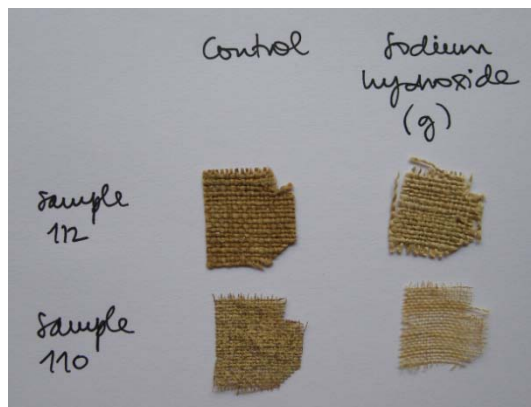 Control
Sodium
hydroxide
(g)
Sample
112
Sample
110